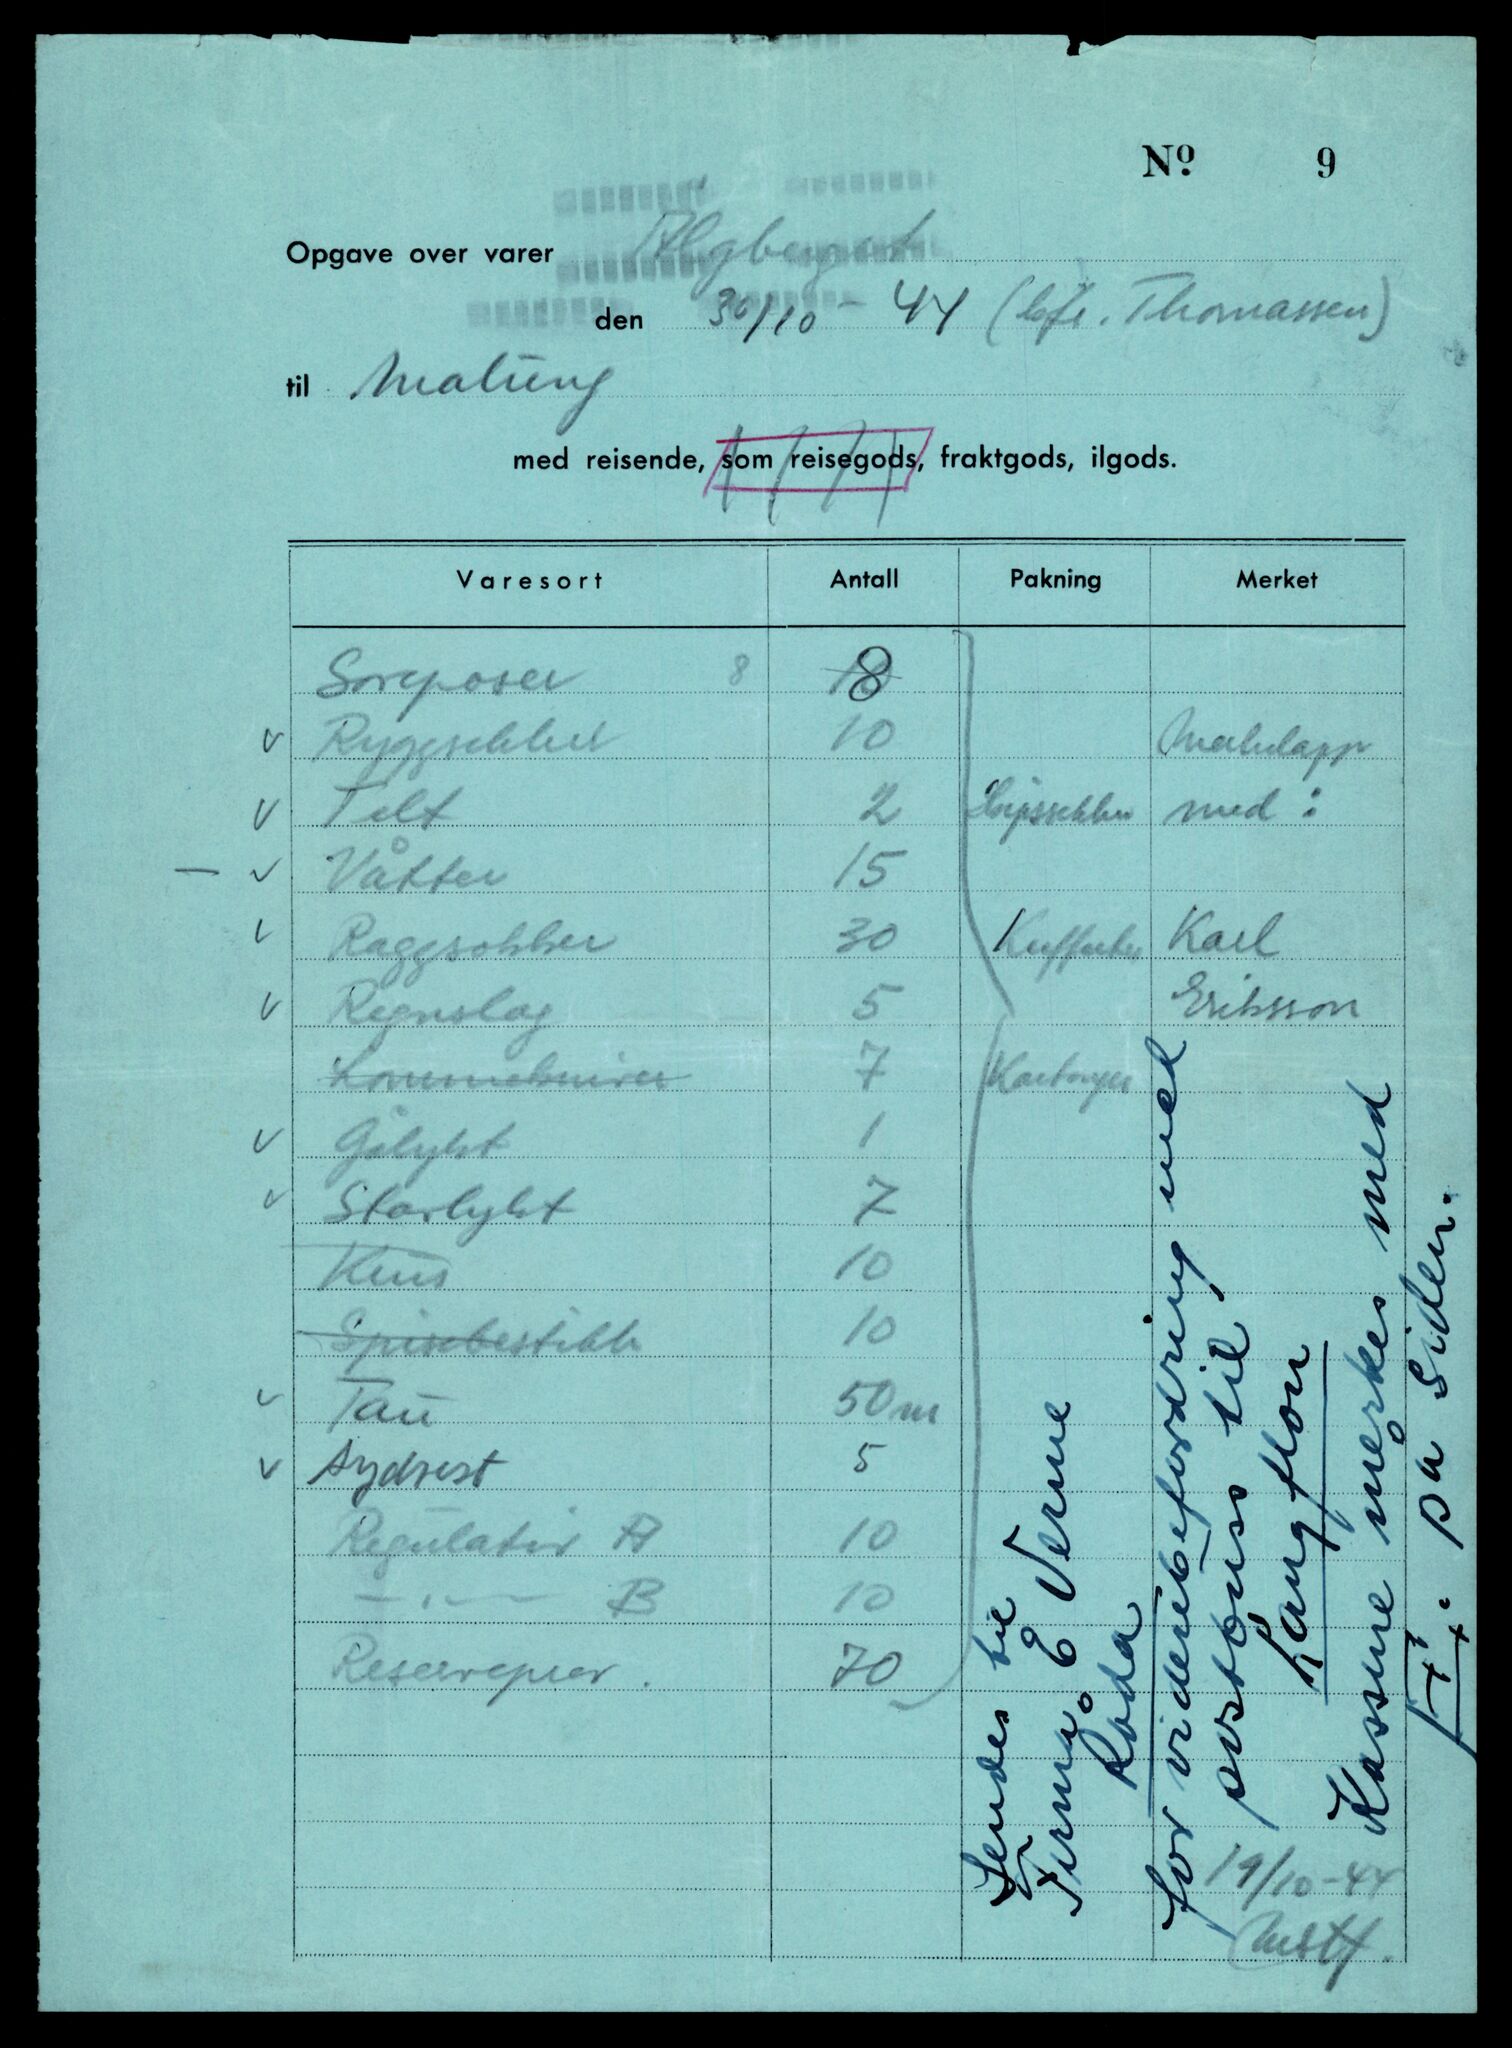 No. 9
Opgave over varer Älgberget
den 30/10 - 44 (lfr. Thomassen)
til Malung
med reisende, som reisegods, fraktgods, ilgods.
Varesort Antall Pakning Merket
Soveposer 8 8
v Ryggsekker 10 Merkelapp
v Telt 2 med :
— v Våtter 15
v Raggsokker 30 Kufferter Karl
v Regnslag 5 Eriksson
Lommekniver 7 Kartonger
v Gålykt 1
v Starlykt 7
Krus 10
Spisebestikk 10
v Tau 50 m
v Sydvest 5
Regulativ A 10
— . — B 10
Reservepær . 70
Sendes til
Firma E Verne
Råda
for viderebefordring med
postbuss til
Långflon
Kassene merkes med
på siden.
19/10-44